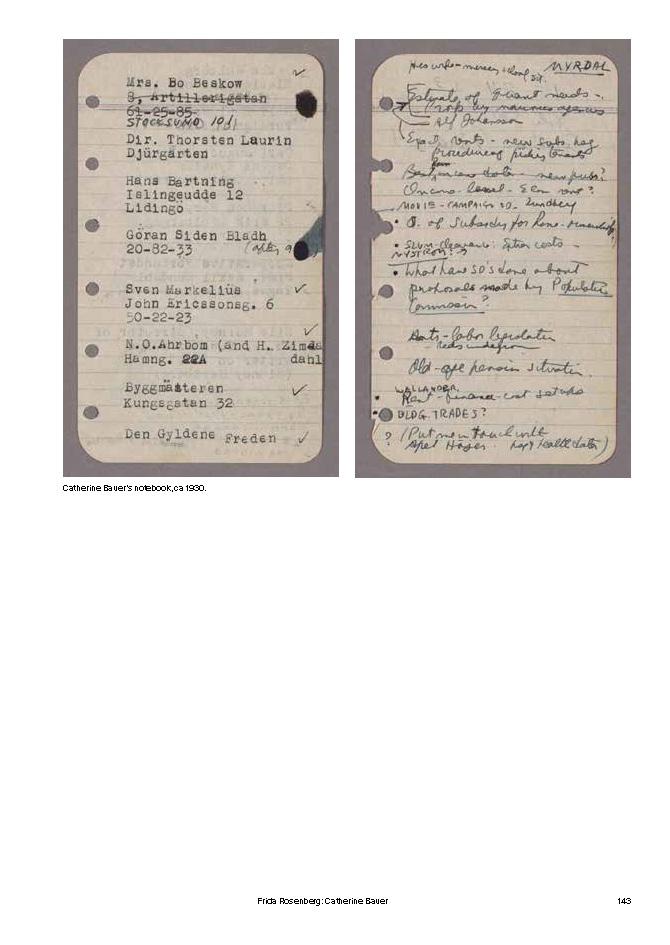 Mrs. Bo Beskow
8, Artillerigatan
61-25-85
STOCKSUND 10/1
Dir. Thorsten Laurin
Djürgården
Hans Bartning
Islingeudde 12
Lidingo
Göran Siden Bladh
20-82-33
Sven Markeliüs
John Ericssonsg. 6
50-22-23
N.O.Ahrbom (and H. Zimda
Hamng. 22A dahl
Byggmästeren
Kungsgatan 32
Den Gyldene Freden
His wife - MYRDAL
Estimate of Quant needs -
by various agencies
Alf Johansson
rents - new subs. hsg
- new pubs?
Cinema - local -
MOVIE - CAMPAIGN SD - Lundberg
• Q. of Subsidy for home-ownership?
• SLUM-clearance: costs -
NYSTROM?
• What have SD's done about
proposals made by Population
Commission?
Anti-labor legislation
Old-age pension situation
WALLANDER.
• Rent - finance - cost set-ups
• BLDG. TRADES?
? (Put me in touch with
Axel Höjer. hsg & health data)
Catherine Bauer's notebook,ca 1930.
Frida Rosenberg: Catherine Bauer
143